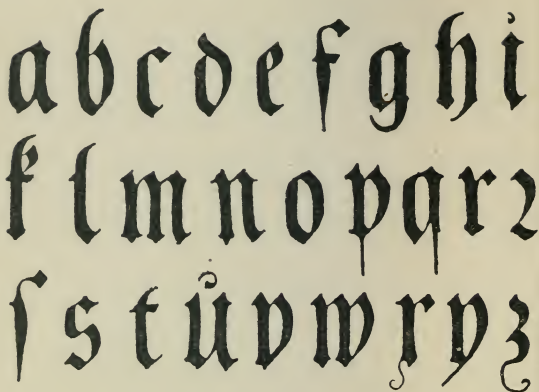 a b c d e f g h i
k l m n o p q r ꝛ
ſ s t ů v w x y z